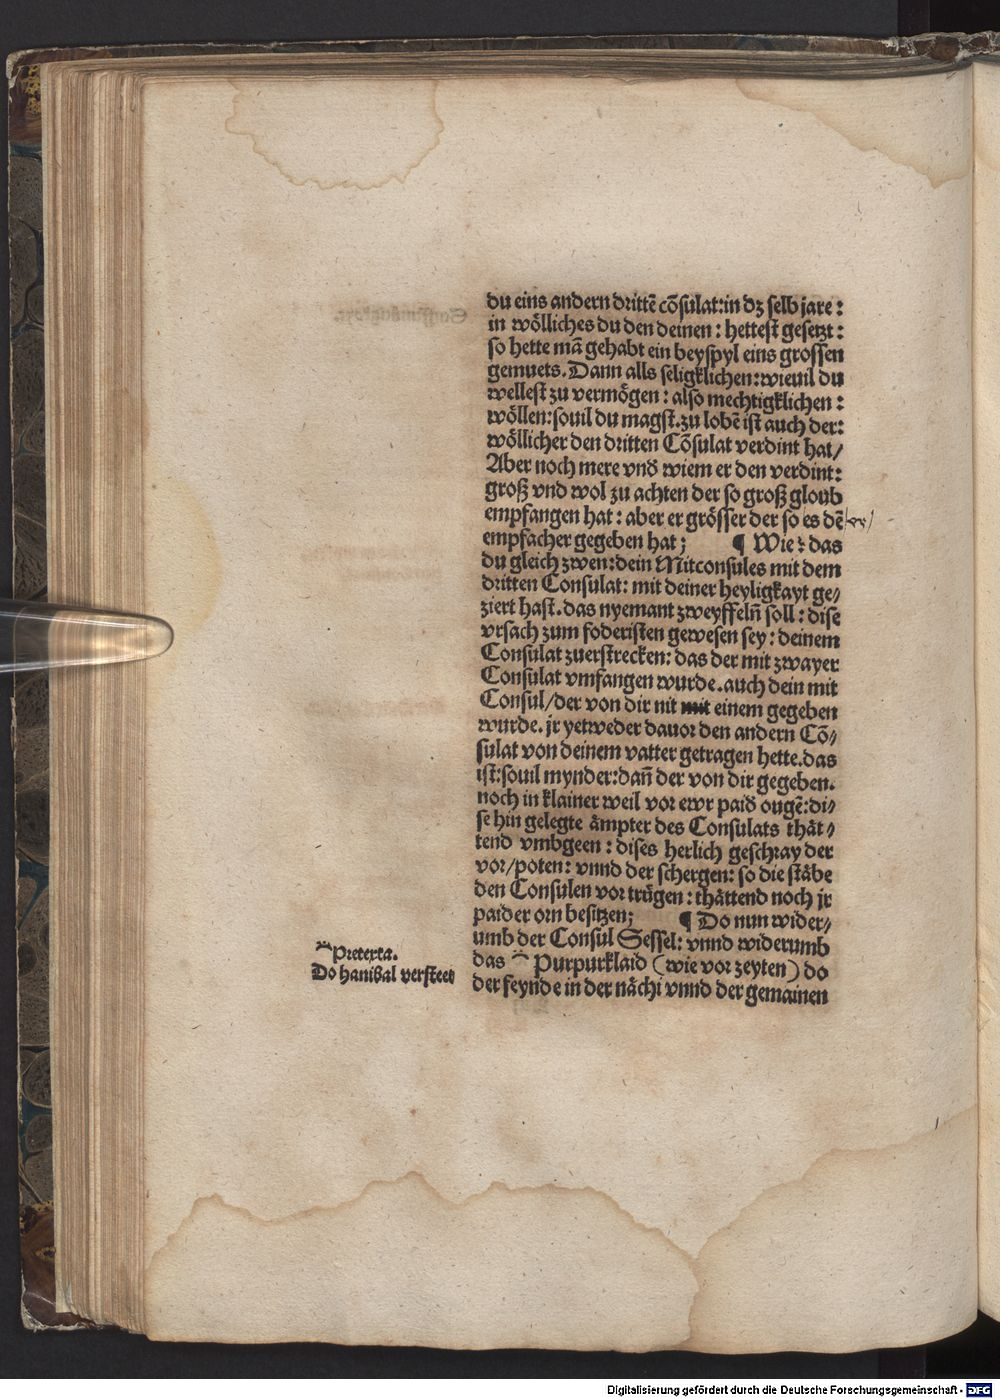 du eins andern drittē cōsulat:in dz selb jare:
in wölliches du den deinen: hettest gesetzt:
so hette mā gehabt ein beyspyl eins grossen
gemuets. Dann alls seligklichen:wieuil du
wellest zu vermögen: also mechtigklichen:
wöllen:souil du magst.zu lobē ist auch der:
wöllicher den dritten Cōsulat verdint hat/
Aber noch mere vnd wiem er den verdint:
groß vnd wol zu achten der so groß gloub
empfangen hat: aber er grösser der so es dē
empfacher gegeben hat; ¶ Wie? das
du gleich zwen:dein Mitconsules mit dem
dritten Consulat: mit deiner heyligkayt ge/
ziert hast.das nyemant zweyffeln̄ soll: dise
vrsach zum foderisten gewesen sey: deinem
Consulat zuerstrecken: das der mit zwayer
Consulat vmfangen wurde.auch dein mit
Consul/der von dir nit mit einem gegeben
wurde. jr yetweder dauor den andern Cō/
sulat von deinem vatter getragen hette.das
ist:souil mynder:dan̄ der von dir gegeben.
noch in klainer weil vor ewr paid ougē:di/
se hin gelegte ämpter des Consulats thät/
tend vmbgeen: dises herlich geschray der
vor/poten: vnnd der schergen: so die stäbe
den Consulen vor trügen: thättend noch jr
paider orn besitzen; ¶ Do nun wider/
umb der Consul Sessel: vnnd widerumb
das Purpurklaid (wie vor zeyten) do
der feynde in der nächi vnnd der gemainen
Pretexta.
Do hanibal versteet
Digitalisierung gefördert durch die Deutsche Forschungsgemeinschaft - DFG